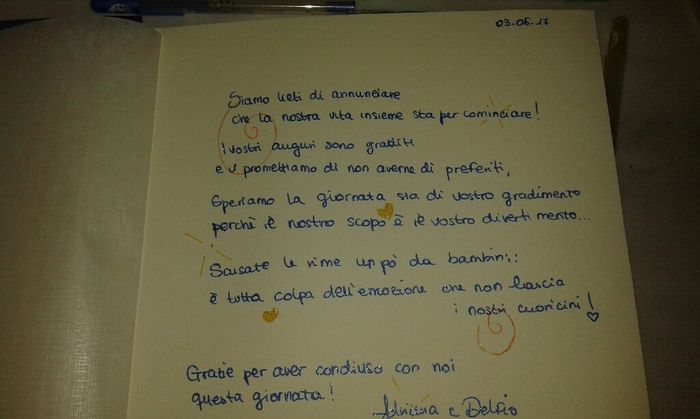 03-06-17
Siamo lieti di annunciare
che la nostra vita insieme sta per cominciare!
i vostri auguri sono graditi
e vi promettiamo di non averne di preferiti,
Speriamo la giornata sia di vostro gradimento
perchè il nostro scopo è il vostro divertimento...
Scusate le rime un pò da bambini:
è tutta colpa dell'emozione che non lascia
i nostri cuoricini!
Grazie per aver condiviso con noi
questa giornata!
e Delfio